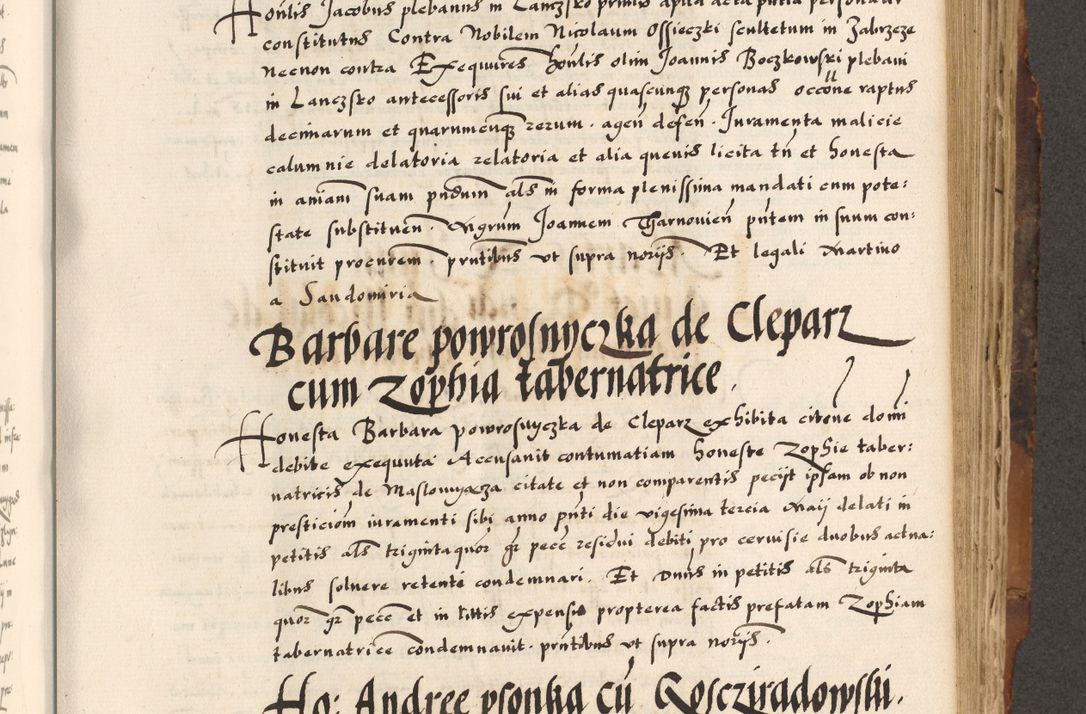 Honlis Jacobus plebanus in Lanczsko primis apud acta pntia personalit
constitutus Contra Nobilem Nicolaum Ossieczki scultetum in Zabrzeze
necnon contra Exequutres honlis olim Joannis Boczkowski plebani
in Lanczsko antecessoris sui et alias quascunq personas occōne raptus
decimarum et quarumcunq rerum . agen defen . Juramenta malicie
calumnie delatoria relatoria et alia quevis licita tn et honesta
in aniam suam pndum als in forma plenissima mandati cum pote:
state substituen . Mgrum Joannem Tharnovien pntem in suum con:
stituit procurem . pntibus ut supra norijs . Et legali Martino
a Sandomiria
Barbare powrosnyczka de Cleparz
cum Zophia tabernatrice .
Honesta Barbara powrosnyczka de Cleparz exhibita citone domi
debite exequuta Accusavit contumatiam honeste Zophie taber:
natricis de Maslomyacza citate et non comparentis pecijt ipsam ob non
presticiom iuramenti sibi anno pnti die vigesima tercia Maij delati in
petitis als trigintaquor gr pecc residui debiti pro cervisie duobus actua:
libus solvere retente condemnari . Et Dnus in petitis als triginta
quor gr pecc et in littis expensis propterea factis prefatam Zophiam
tabernatricē condemnavit . pntibus ut supra norijs .
Ho: Andree psonka cū Gosczyradowski .